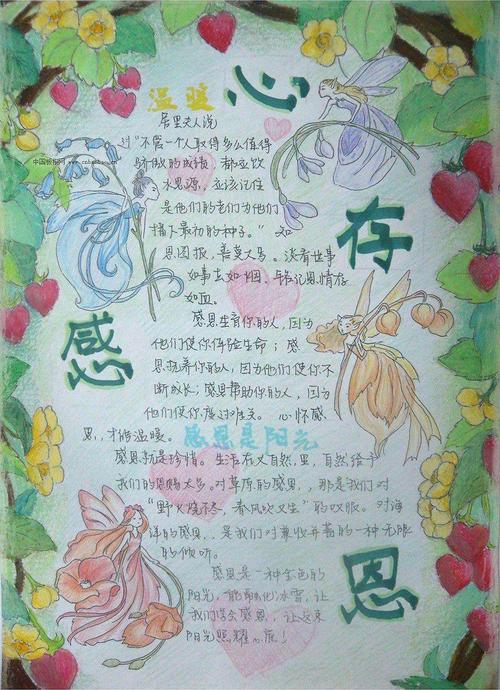 心存感恩
温暖
中国板报网
居里夫人说
过"不管一个人取得多么值得
骄傲的成绩,都应饮
水思源,应该记住
是他们的老师为他们
播下最初的种子。" 知
恩图报,善莫大焉。淡看世事
如事去如烟,铭记恩情存
如血。
感恩生育你的人,因为
他们使你体验生命;感
恩抚养你的人,因为他们使你不
断成长;感恩帮助你的人,因为
他们使你度过难关。心怀感
恩,才能温暖。
感恩是阳光
感恩就是珍惜。生活在大自然里,自然给予
我们的恩赐太多。对草原的感恩,那是我们对
"野火烧不尽,春风吹又生"的叹服。对海
洋的感恩,是我们对兼收并蓄的一种无限
的倾听。
感恩是一种金色的
阳光,能融化冰雪,让
我们学会感恩,让这束
阳光照耀心底!